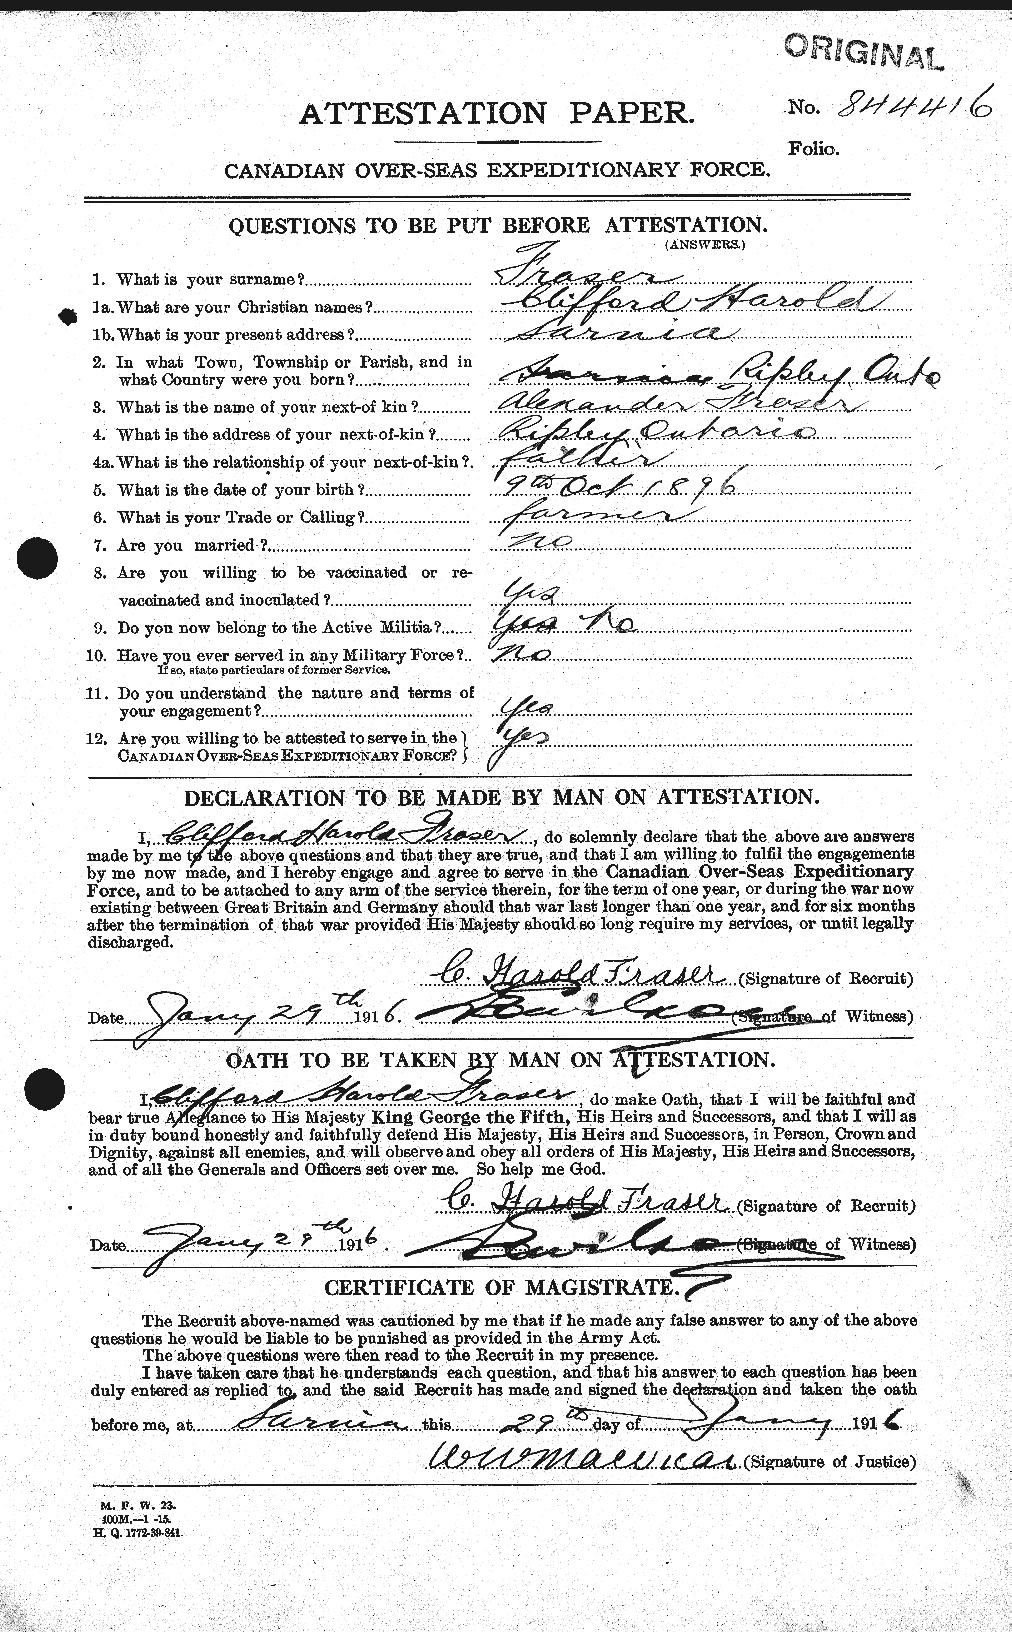 ORIGINAL
ATTESTATION PAPER.
No. 844416
Folio.
CANADIAN OVER-SEAS EXPEDITIONARY FORCE.
QUESTIONS TO BE PUT BEFORE ATTESTATION.
(ANSWERS.)
1. What is your surname? Fraser
1a. What are your Christian names? Clifford Harold
1b. What is your present address? Sarnia
2. In what Town, Township or Parish, and in
what Country were you born? Sarnia Ripley Onto
3. What is the name of your next-of kin? Alexander Fraser
4. What is the address of your next-of-kin? Ripley Ontario
4a. What is the relationship of your next-of-kin? father
5. What is the date of your birth? 9th Oct 1896
6. What is your Trade or Calling? farmer
7. Are you married? no
8. Are you willing to be vaccinated or re-
vaccinated and inoculated? Yes
9. Do you now belong to the Active Militia? Yes No
10. Have you ever served in any Military Force? no
If so, state particulars of former Service.
11. Do you understand the nature and terms of
your engagement? Yes
12. Are you willing to be attested to serve in the
CANADIAN OVER-SEAS EXPEDITIONARY FORCE? Yes
DECLARATION TO BE MADE BY MAN ON ATTESTATION.
I, Clifford Harold Fraser, do solemnly declare that the above are answers
made by me to the above questions and that they are true, and that I am willing to fulfil the engagements
by me now made, and I hereby engage and agree to serve in the Canadian Over-Seas Expeditionary
Force, and to be attached to any arm of the service therein, for the term of one year, or during the war now
existing between Great Britain and Germany should that war last longer than one year, and for six months
after the termination of that war provided His Majesty should so long require my services, or until legally
discharged.
C. Harold Fraser (Signature of Recruit)
Date Jany 29th 1916. (Signature of Witness)
OATH TO BE TAKEN BY MAN ON ATTESTATION.
I, Clifford Harold Fraser, do make Oath, that I will be faithful and
bear true Allegiance to His Majesty King George the Fifth, His Heirs and Successors, and that I will as
in duty bound honestly and faithfully defend His Majesty, His Heirs and Successors, in Person, Crown and
Dignity, against all enemies, and will observe and obey all orders of His Majesty, His Heirs and Successors,
and of all the Generals and Officers set over me. So help me God.
C. Harold Fraser (Signature of Recruit)
Date Jany 29th 1916. (Signature of Witness)
CERTIFICATE OF MAGISTRATE.
The Recruit above-named was cautioned by me that if he made any false answer to any of the above
questions he would be liable to be punished as provided in the Army Act.
The above questions were then read to the Recruit in my presence.
I have taken care that he understands each question, and that his answer to each question has been
duly entered as replied to, and the said Recruit has made and signed the declaration and taken the oath
before me, at Sarnia this 29th day of Jany 1916
(Signature of Justice)
M. F. W. 23.
400M.—1 -15.
H. Q. 1772-39-841.